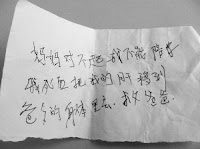 妈妈对不起我不能陪你
我永远把我的肝移到
爸爸的身体里去.救爸爸.